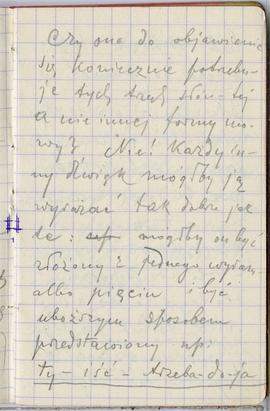 Czy one do objawienia
się koniecznie potrzebu-
je tych trzech słów - tej
a nie innej formy mo-
wy? Nie! Każdy in-
ny dźwięk mógłby ją
wyrażać tak dobrze jak
te: mógłby on być
złożony z jednego wyrazu
albo pięciu i być
uboższym sposobem
przedstawiony np:
ty - iść - trzeba - do - ja